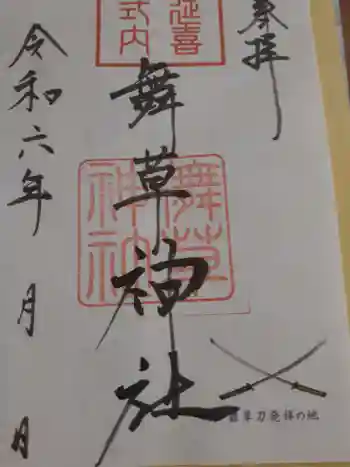 奉拝
延喜
式内
舞草神社
舞草
神社
舞草刀発祥の地
令和六年 月 日